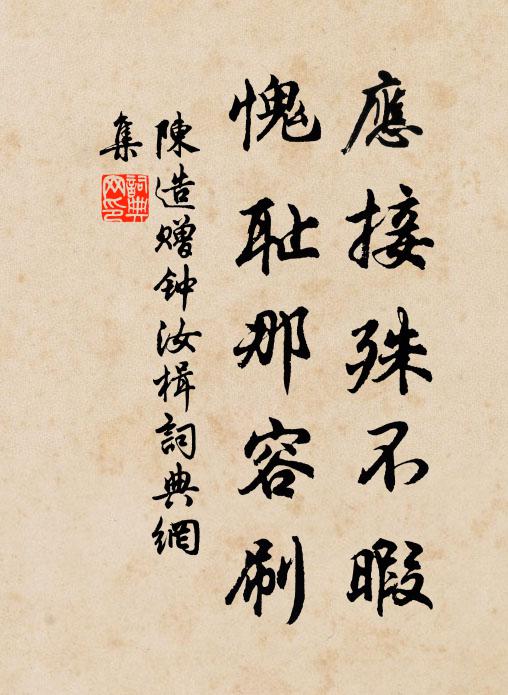 應接殊不暇
愧耻那容刷
陳造赠钟汝楫詞典網
集
詞典网印